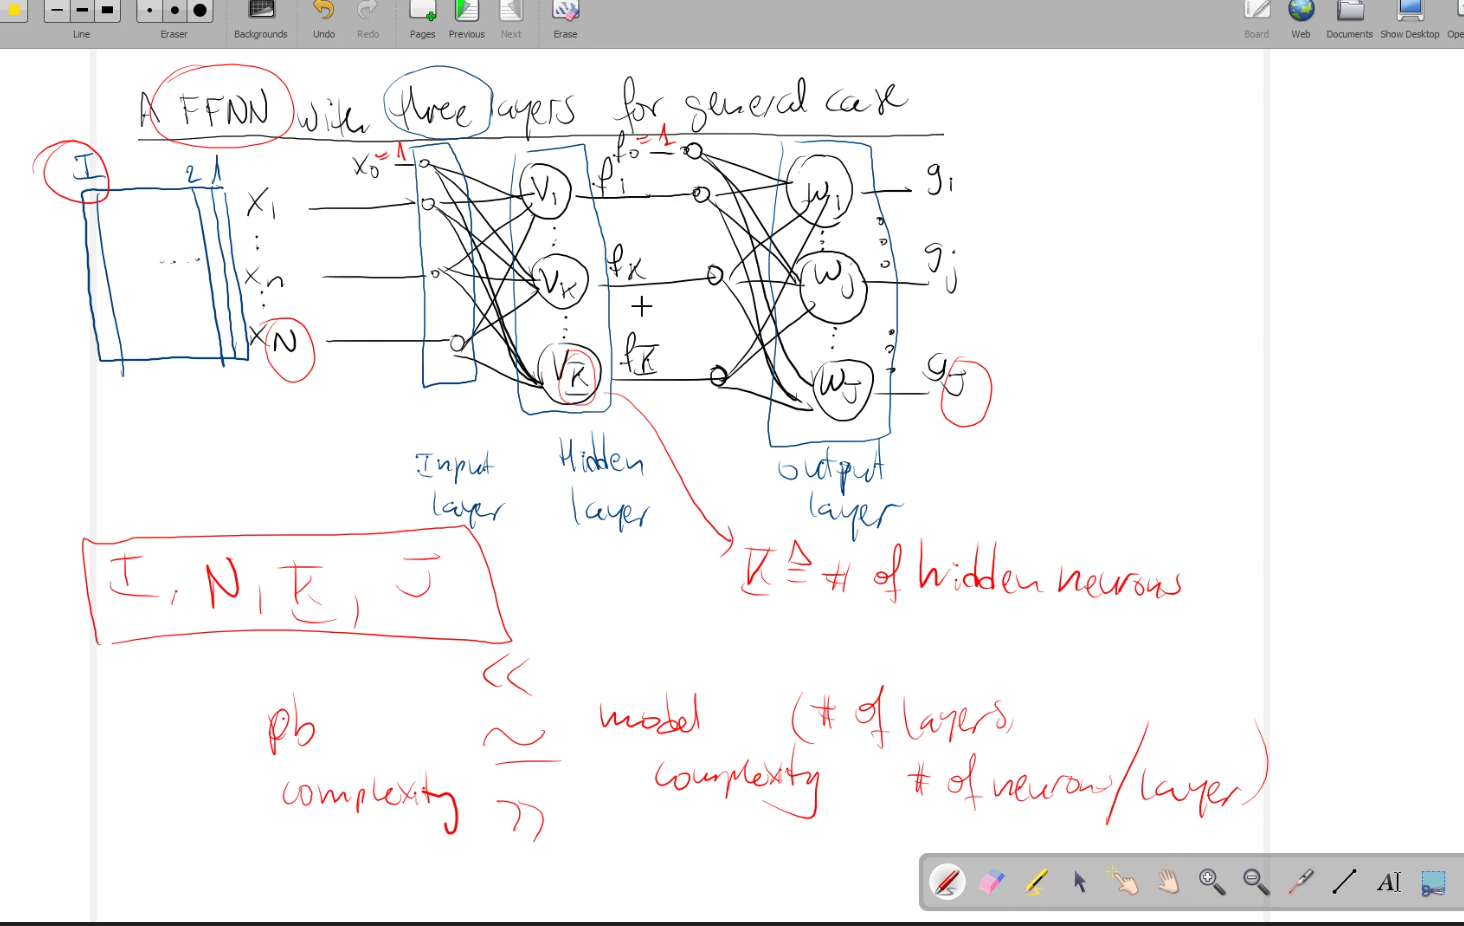 Line
Eraser
Backgrounds
Undo
Redo
Pages
Previous
Next
Erase
Board
Web
Documents
Show Desktop
Ope
A FFNN with three layers for general case
I
2 1
x₀ = 1
x₁
⋮
xₙ
⋮
x_N
V₁
⋮
V_k
⋮
V_K
f₀ = 1
f₁
f_k
+
f_K
w₁
⋮
w_j
⋮
w_J
g₁
g_j
g_J
Input layer
Hidden layer
Output layer
K ≙ # of hidden neurons
I, N, K, J
<<
pb complexity ≃ model complexity (# of layers, # of neurons/layer)
>>
AI